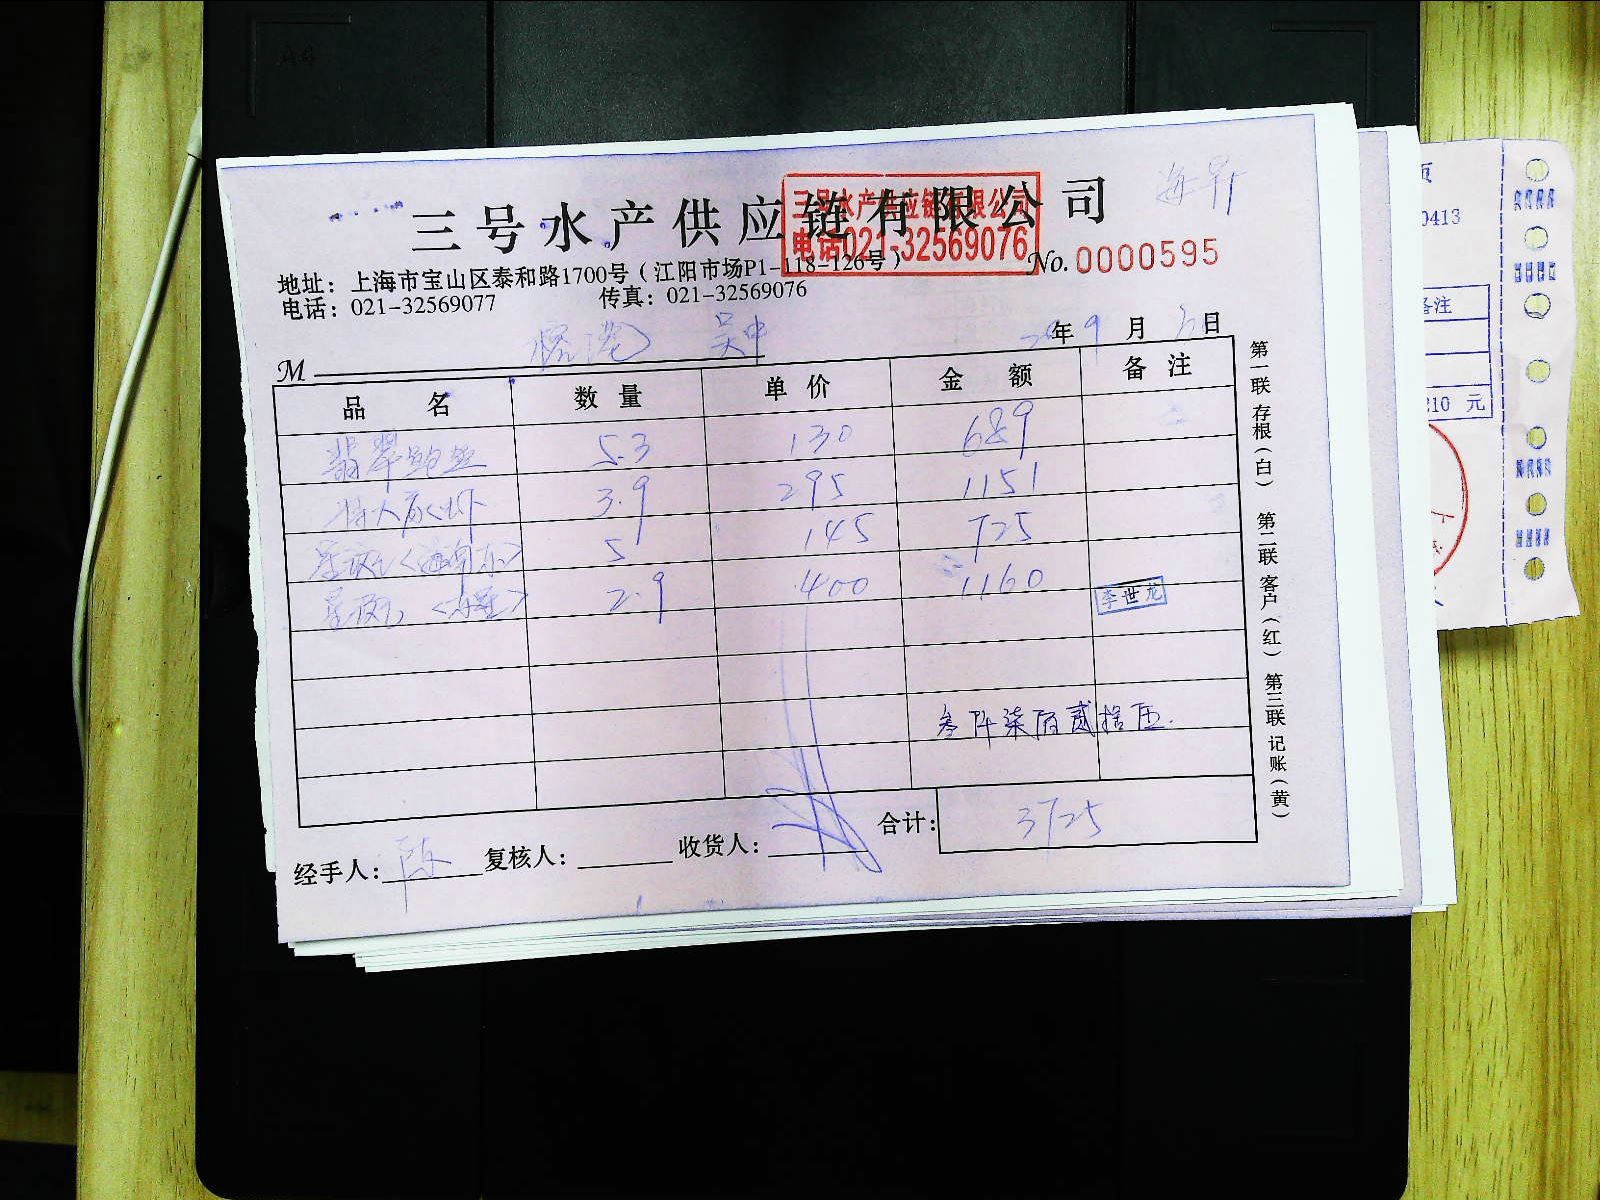 三号水产供应链有限公司
三号水产供应链有限公司
电话021-32569076
地址：上海市宝山区泰和路1700号（江阳市场P1-118-126号）
No.0000595
电话：021-32569077 传真：021-32569076
吴中
年9月 日
M
品名 数量 单价 金额 备注
翡翠鲍鱼 5.3 130 689
特大 虾 3.9 295 1151
5 145 725
2.9 400 1160
李世龙
叁仟柒佰贰拾伍
合计： 3725
经手人：陈 复核人： 收货人：
第一联存根（白） 第二联客户（红） 第三联记账（黄）
0413
备注
210 元